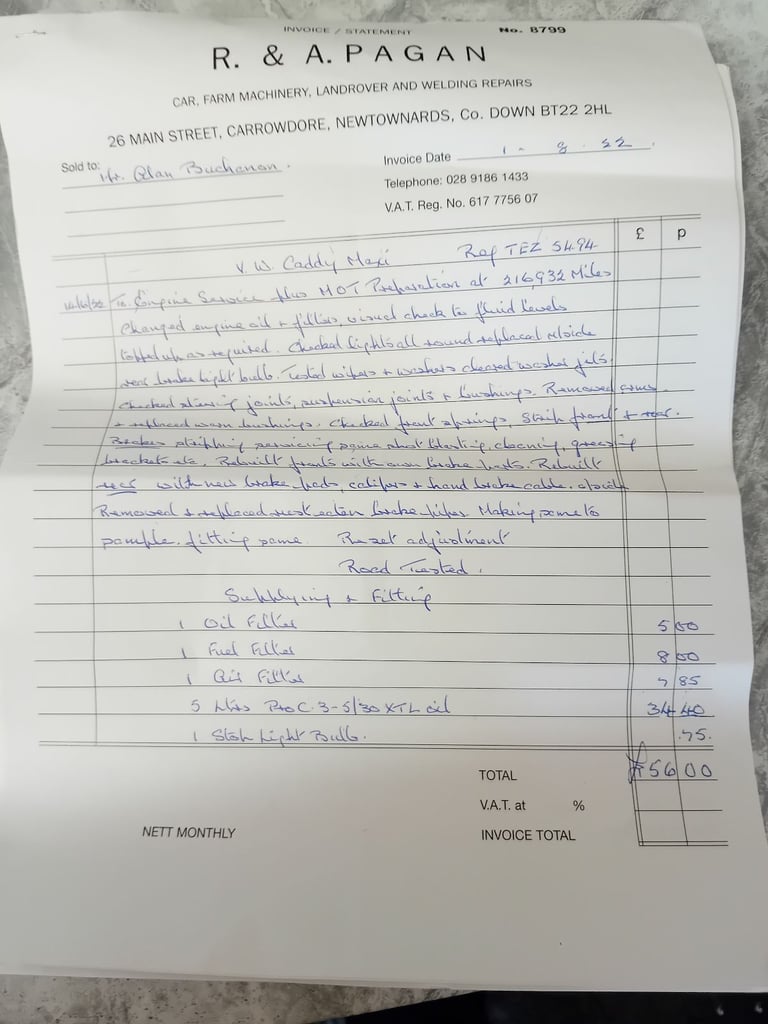 INVOICE / STATEMENT No. 8799
R. & A. PAGAN
CAR, FARM MACHINERY, LANDROVER AND WELDING REPAIRS
26 MAIN STREET, CARROWDORE, NEWTOWNARDS, Co. DOWN BT22 2HL
Sold to: Mr. Alan Buchanan.
Invoice Date 1 - 8 . 22.
Telephone: 028 9186 1433
V.A.T. Reg. No. 617 7756 07
£ p
V.W. Caddy Maxi Reg TEZ 5494
To Engine Service plus MOT Preparation at 216932 Miles
Changed engine oil + filters, visual check to fluid levels
topped up as required. Checked lights all round replaced o/side
rear brake light bulb. Tested wipers + washers cleared washer jets.
Checked steering joints, suspension joints + bushings. Removed arms
+ replaced worn bushings. Checked front springs, Strip front + rear.
Brakes stripping servicing same shot blasting, cleaning, greasing
brackets etc. Rebuilt fronts with own brake pads. Rebuilt
rear with new brake pads, calipers + hand brake cable. o/side
Removed + replaced rust eaten brake pipes. Making same to
sample. fitting same. Reset adjustment
Road Tested.
Supplying + Fitting
1 Oil Filter 5 00
1 Fuel Filter 8 00
1 Air Filter 7 85
5 Ltrs Pro C.3-5/30 XTL oil 34 40
1 Stop Light Bulb. .75.
TOTAL £56 00
V.A.T. at %
NETT MONTHLY INVOICE TOTAL